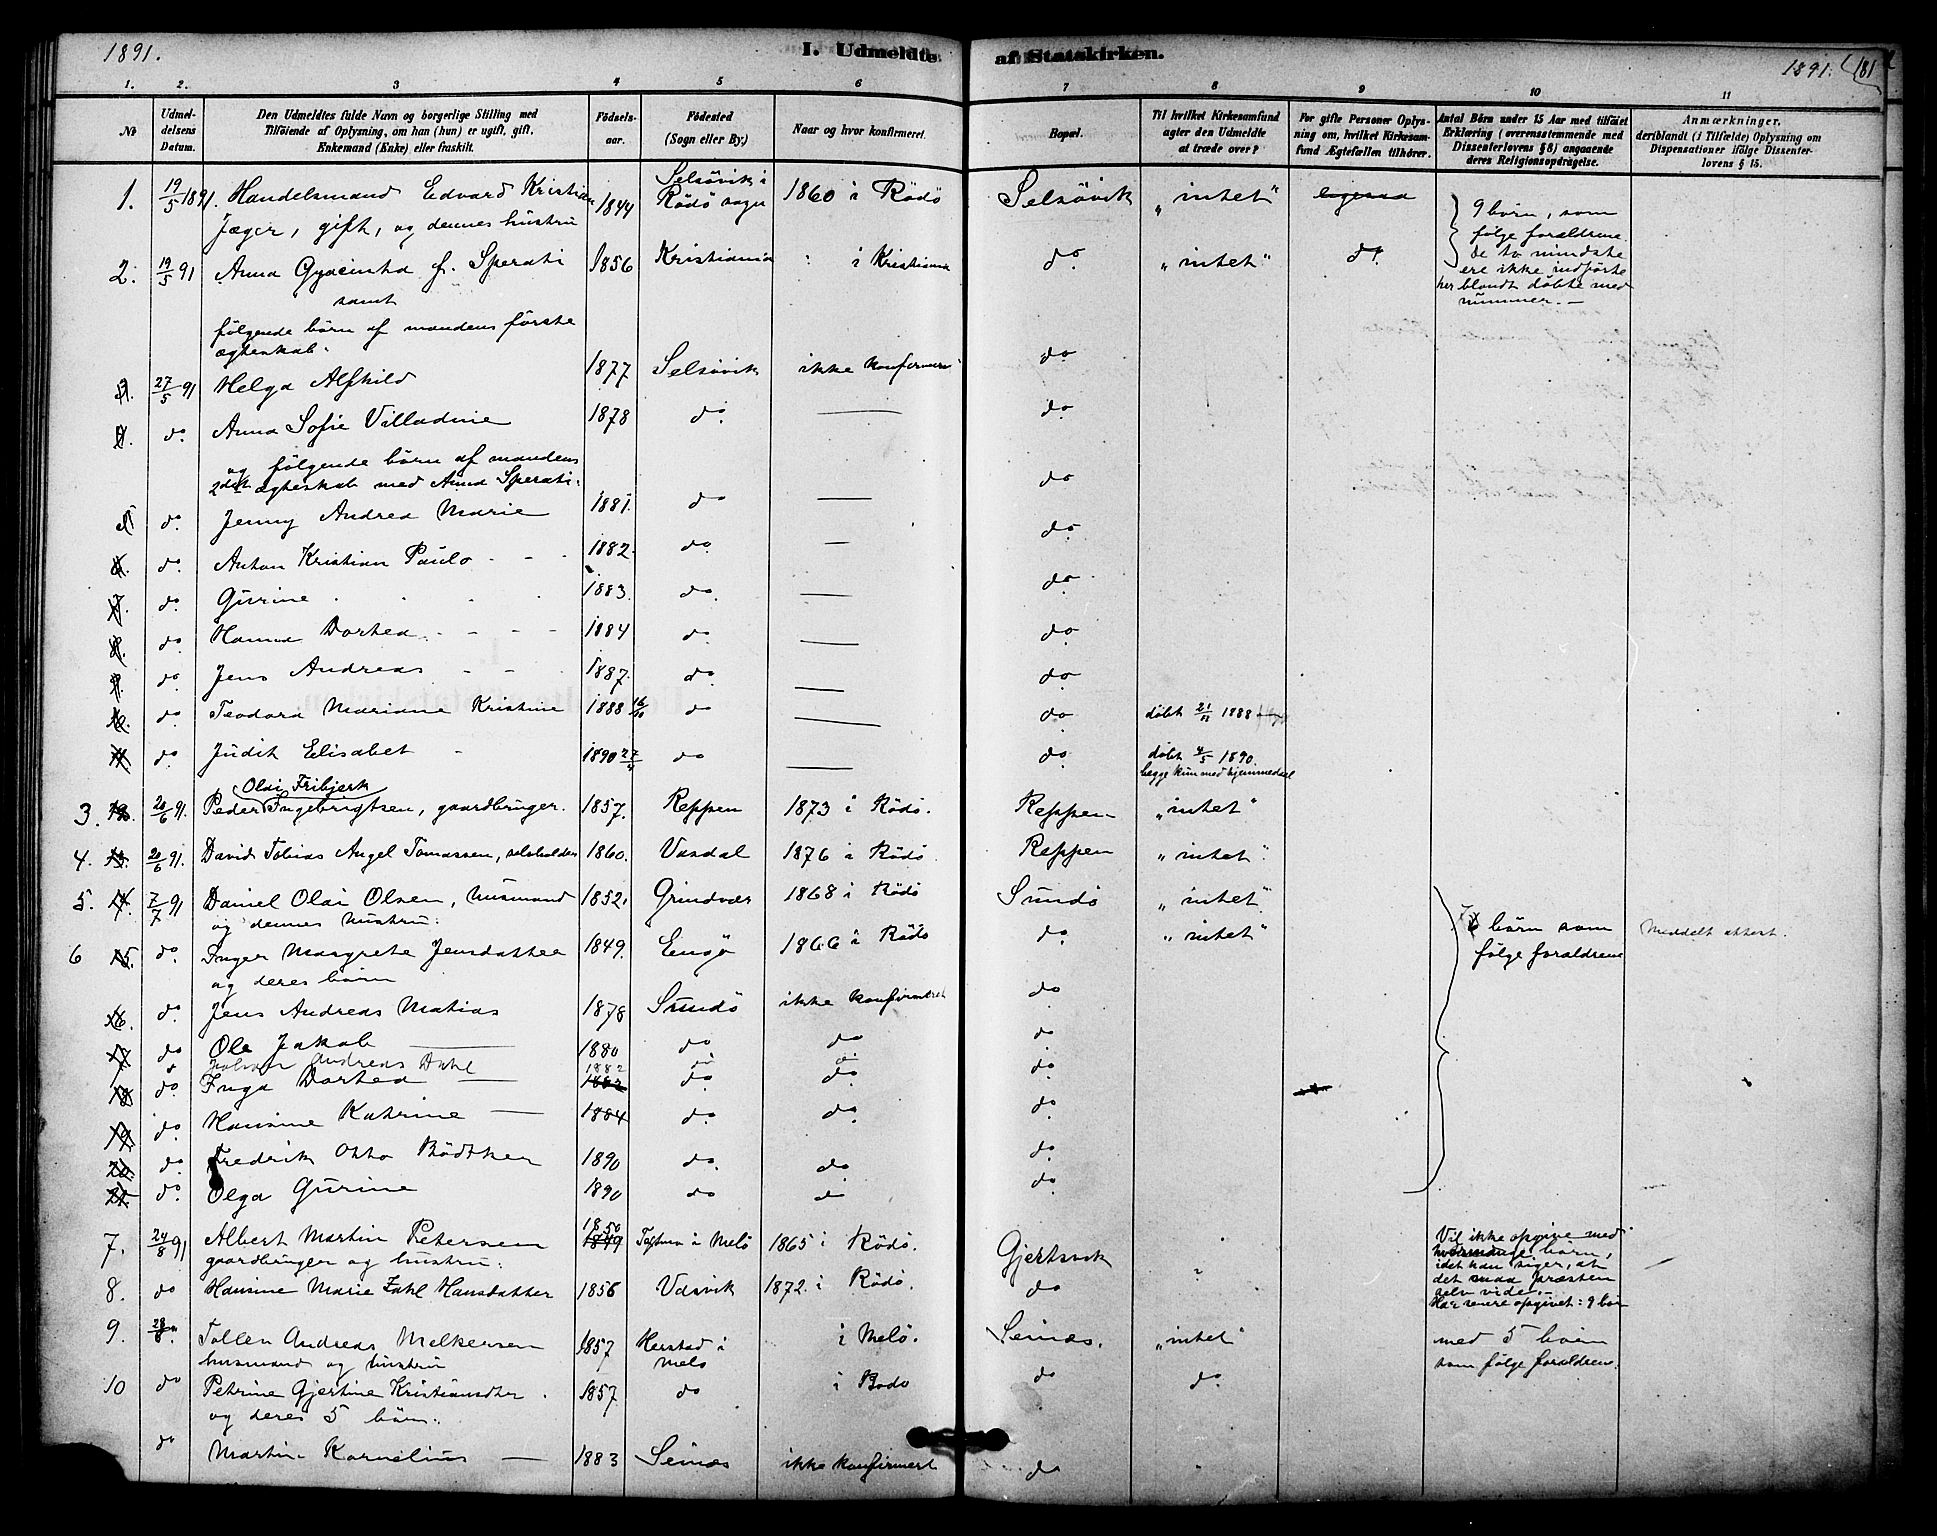 1891.
I. Udmeldte af Statskirken.
1891.
181
1. 2. 3 4 5 6 7 8 9 10 11
No
Udmeldelsens Datum.
Den Udmeldtes fulde Navn og borgerlige Stilling med
Tilføiende af Oplysning, om han (hun) er ugift, gift,
Enkemand (Enke) eller fraskilt.
Fødselsaar.
Fødested
(Sogn eller By.)
Naar og hvor konfirmeret.
Bopæl.
Til hvilket Kirkesamfund
agter den Udmeldte
at træde over?
For gifte Personer Oplysning om, hvilket Kirkesamfund Ægtefællen tilhører.
Antal Børn under 15 Aar med tilføiet
Erklæring (overensstemmende med
Dissenterlovens § 8) angaaende
deres Religionsopdragelse.
Anmærkninger,
deriblandt (i Tilfælde) Oplysning om
Dispensationer ifølge Dissenterlovens § 15.
1. 19/5 1891. Handelsmand Edvard Kristian 1844 Selsövik i Rödö sogn 1860 i Rödö Selsövik "intet" ligesaa
Jæger, gift, og dennes hustru
9 börn, som
følge forældrene.
de to mindste
ere ikke indførte
her blandt döbte med
nummer. –
2. 19/5 91 Anna Gyacinta f. Sperati 1856 Kristiania i Kristiania do "intet" do
samt
følgende börn af mandens første
ægteskab.
3. 27/5 91 Helga Alfhild 1877 Selsövik ikke konfirmeret do
4. do Anna Sofie Villadine 1878 do — do
og følgende börn af mandens
2det ægteskab med Anna Sperati.
do
5. do. Jenny Andrea Marie 1881. do — do
6. do. Anton Kristian Paulo 1882. do — do
7. do. Gurine 1883. do. — do
8. do. Hanna Dortea 1884 do. — do
9. do. Jens Andreas 1887. do. — do
10. do. Teodora Mariane Kristine 1888 16/10 do — do döbt 21/11 1888
11. do. Judit Elisabet 1890 27/4 do — do döbt 4/5 1890.
begge kun med hjemmedaab
Olai Fribjerk
3. 12. 20/6 91. Peder Ingebrigtsen, gaardbruger. 1857. Reppen 1873 i Rödö. Reppen "intet"
4. 13. 20/6 91. David Tobias Angel Tomassen, selvholder 1860. Vasdal 1876 i Rödö Reppen "intet".
5. 14. 7/7 91 Daniel Olai Olsen, husmand 1852. Grindvær 1868 i Rödö Sundö "intet"
og dennes hustru:
6 15. do. Inger Margrete Jensdatter 1849. Engö 1866 i Rödö do. "intet"
7 börn som
følge forældrene
Meddelt attest.
og deres börn
16. do. Jens Andreas Matias 1878 Sundö ikke konfirmeret do
17 do Ole Jakob — 1880 do do do.
Andreas Dahl 1882 do do
18 do. Inga Dortea — 1882 do. do. do.
19. do. Hansine Katrine — 1884 do. do. do.
20. do. Fredrik Otto Bödtker 1890 do. do. do.
21. do. Olga Gurine 1890 do do do.
7. 24/8 91 Albert Martin Petersen 1850 1849 i Melö 1865 i Rödö. Gjertsvik
gaardbruger og hustru:
Vil ikke opgive med
hvormange börn,
idet han siger, at
det maa præsten
selv vide. –
Har senere opgivet: 9 börn
8. do Hansine Marie Zahl Hansdatter 1856 Udsvik 1872. i Rödö. do
9. 28/8. Tollen Andreas Melkersen 1857 Herstad i Melö i Melö. Seinæs. "intet"
med 5 börn
som følge forældrene.
husmand og hustru
10 do Petrine Gjertine Kristiansdtr 1857 do i Bodö do do.
og deres 5 börn.
do Martin Kornelius — 1883 Seinæs ikke konfirmert do